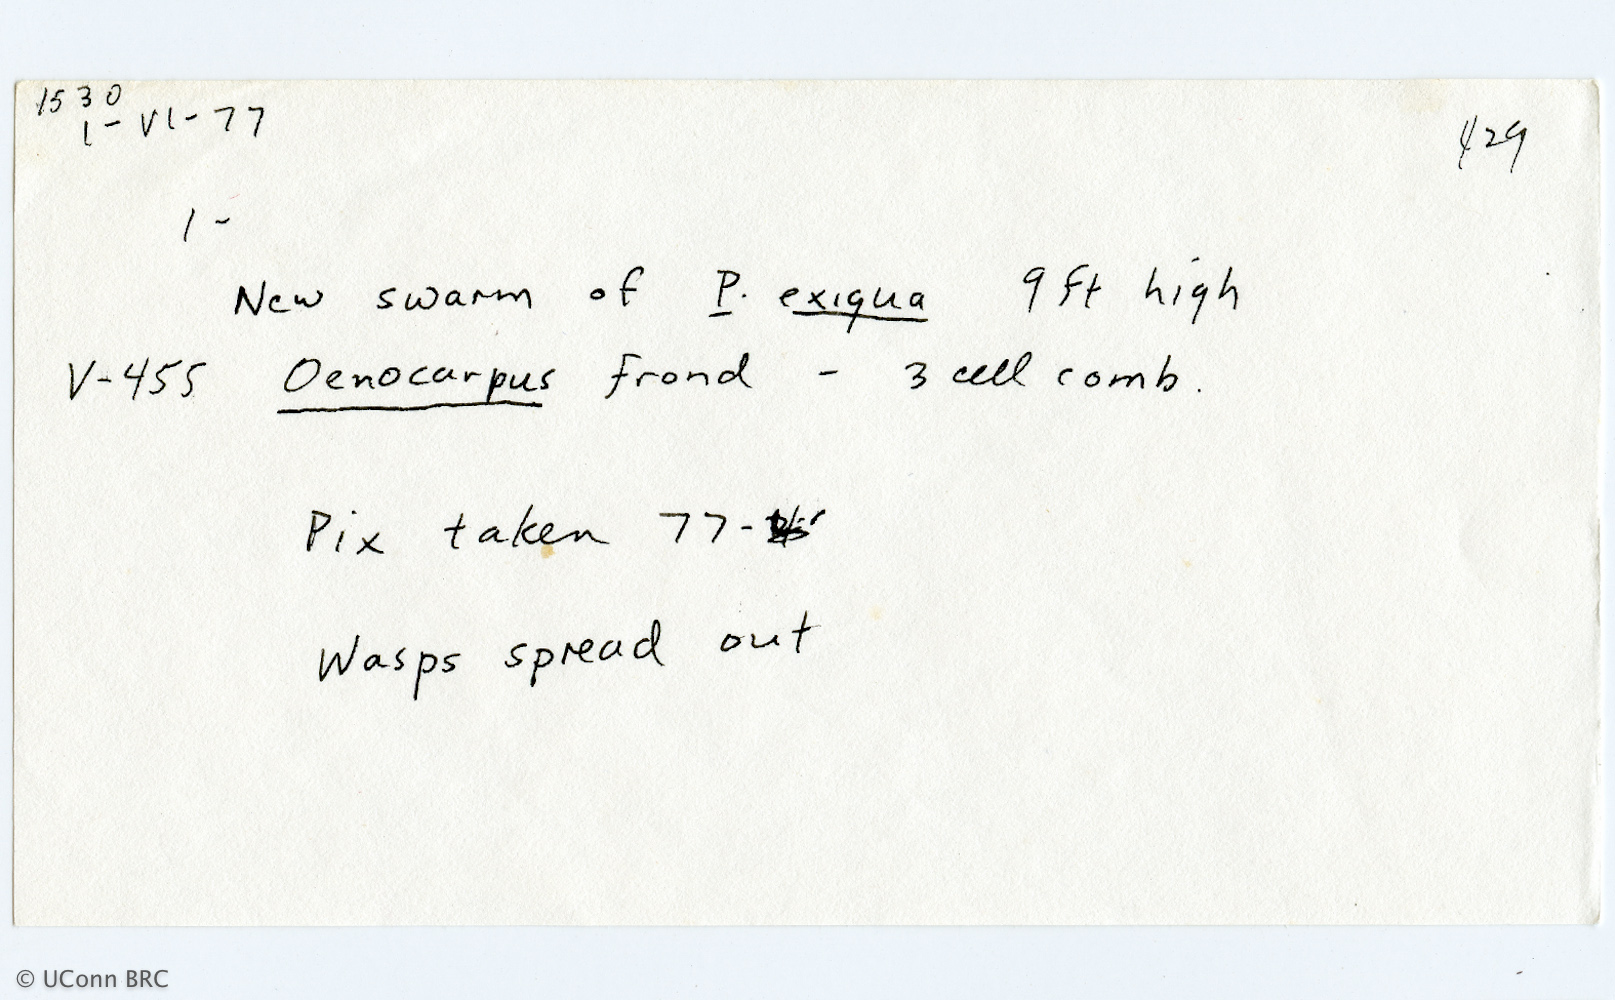 1530
1-VI-77
429
1-
New swarm of P. exiqua 9 ft high
V-455 Oenocarpus frond - 3 cell comb.
Pix taken 77-
Wasps spread out
© UConn BRC